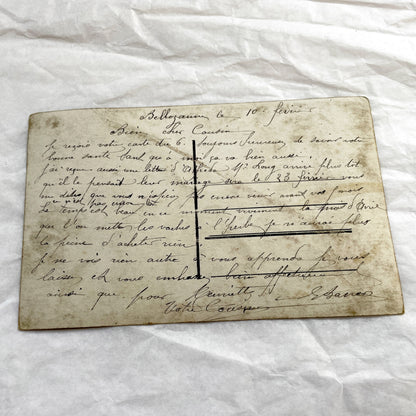 Bellozanne le 10 février
Bien cher Cousin
Je reçois votre carte du 6 toujours heureux de savoir votre
bonne santé tant qu'a moi sa va bien aussi,
j'ai reçue aussi une lettre d' arrivé plus tôt
qu'il le pensait leur mariage sera le 23 février vous
me dites que vous
pas encore venir mais
de temps est beau en ce moment vivement la fin d'Avril
que l'on mette les vaches à l'herbe je n'aurai plus
la peine d'acheter rien
je ne vois rien autre a vous apprendre je vous
laisse et vous embrasse bien affectueusement
ainsi que pour Henriette
Votre Cousin